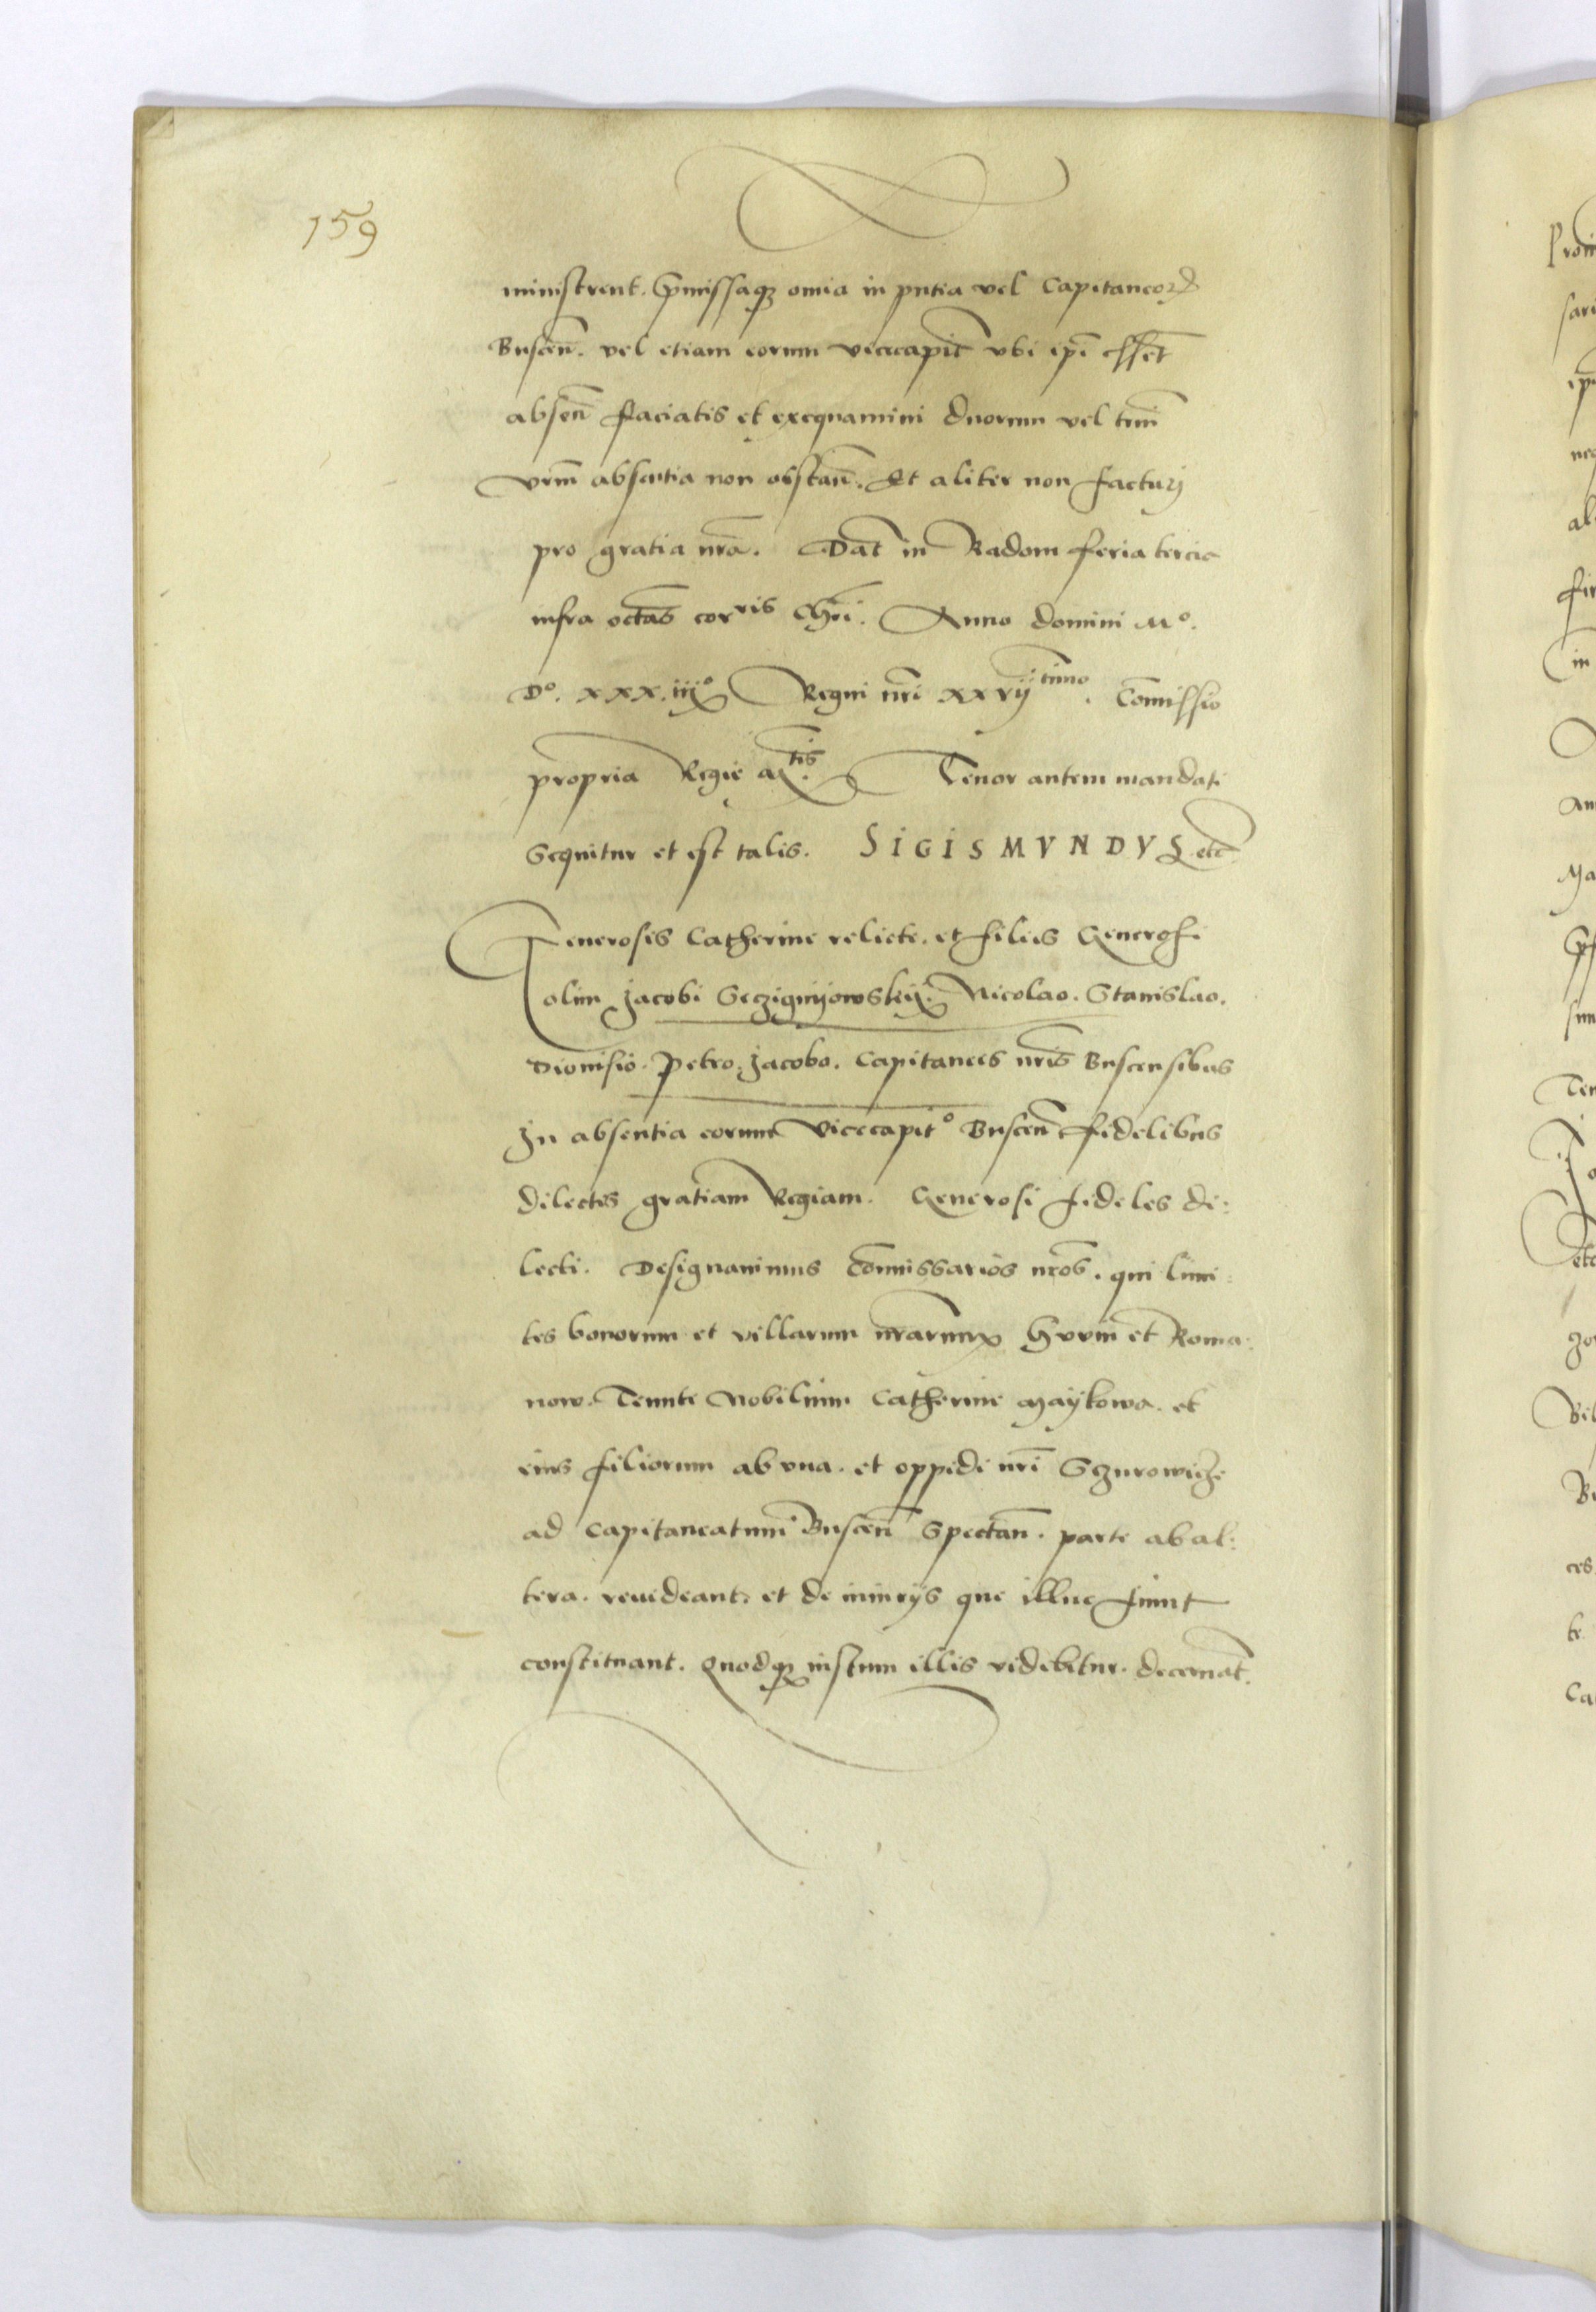 159
ministrent. Pmissaqꝫ omia in pntia vel Capitaneoꝝ
Buscen̄. vel etiam eorum vicecapit̄ vbi ipi̅ esset̄
absen̄ faciatis et exequamini duorum vel trim̄
vrm̄ absentia non obstan̄. Et aliter non facturj
pro gratia nrā. Dat̄ in Radom feria tercia
infra octas̄ corris Chri̅. Anno domini Mº.
Dº. xxx.iijº Regni nri̅ xxvijtimo. Com̄issio
propria Regie mtis. Tenor autem mandati
Sequitur et est talis. SIGISMVNDVS etc̄
Generosis Catherine relicte. et filiis Generosi
olim Jacobi Secziguijowskij. Nicolao. Stanislao.
Dionisio. Petro. Jacobo. Capitaneis nris̄ Buscensibus
In absentia eorum vicecapitº Buscen̄ fidelibus
dilectis gratiam Regiam. Generosi fideles di:
lecti. Designauimus com̄issarios nros̄. qui limi:
tes bonorum et villarum nrarum̄ Hvrin̄ et Roma:
now. Tennte Nobilium Catherine Maykowa. et
eius filiorum ab vna. et oppidi nri̅ Sczurowicze
ad Capitaneatum Buscen̄ Spectan̄. parte ab al:
tera. reuideant. et de iniurijs que illuc fiunt
constituant. Quodqꝫ iustum illis videbitur. decernāt.